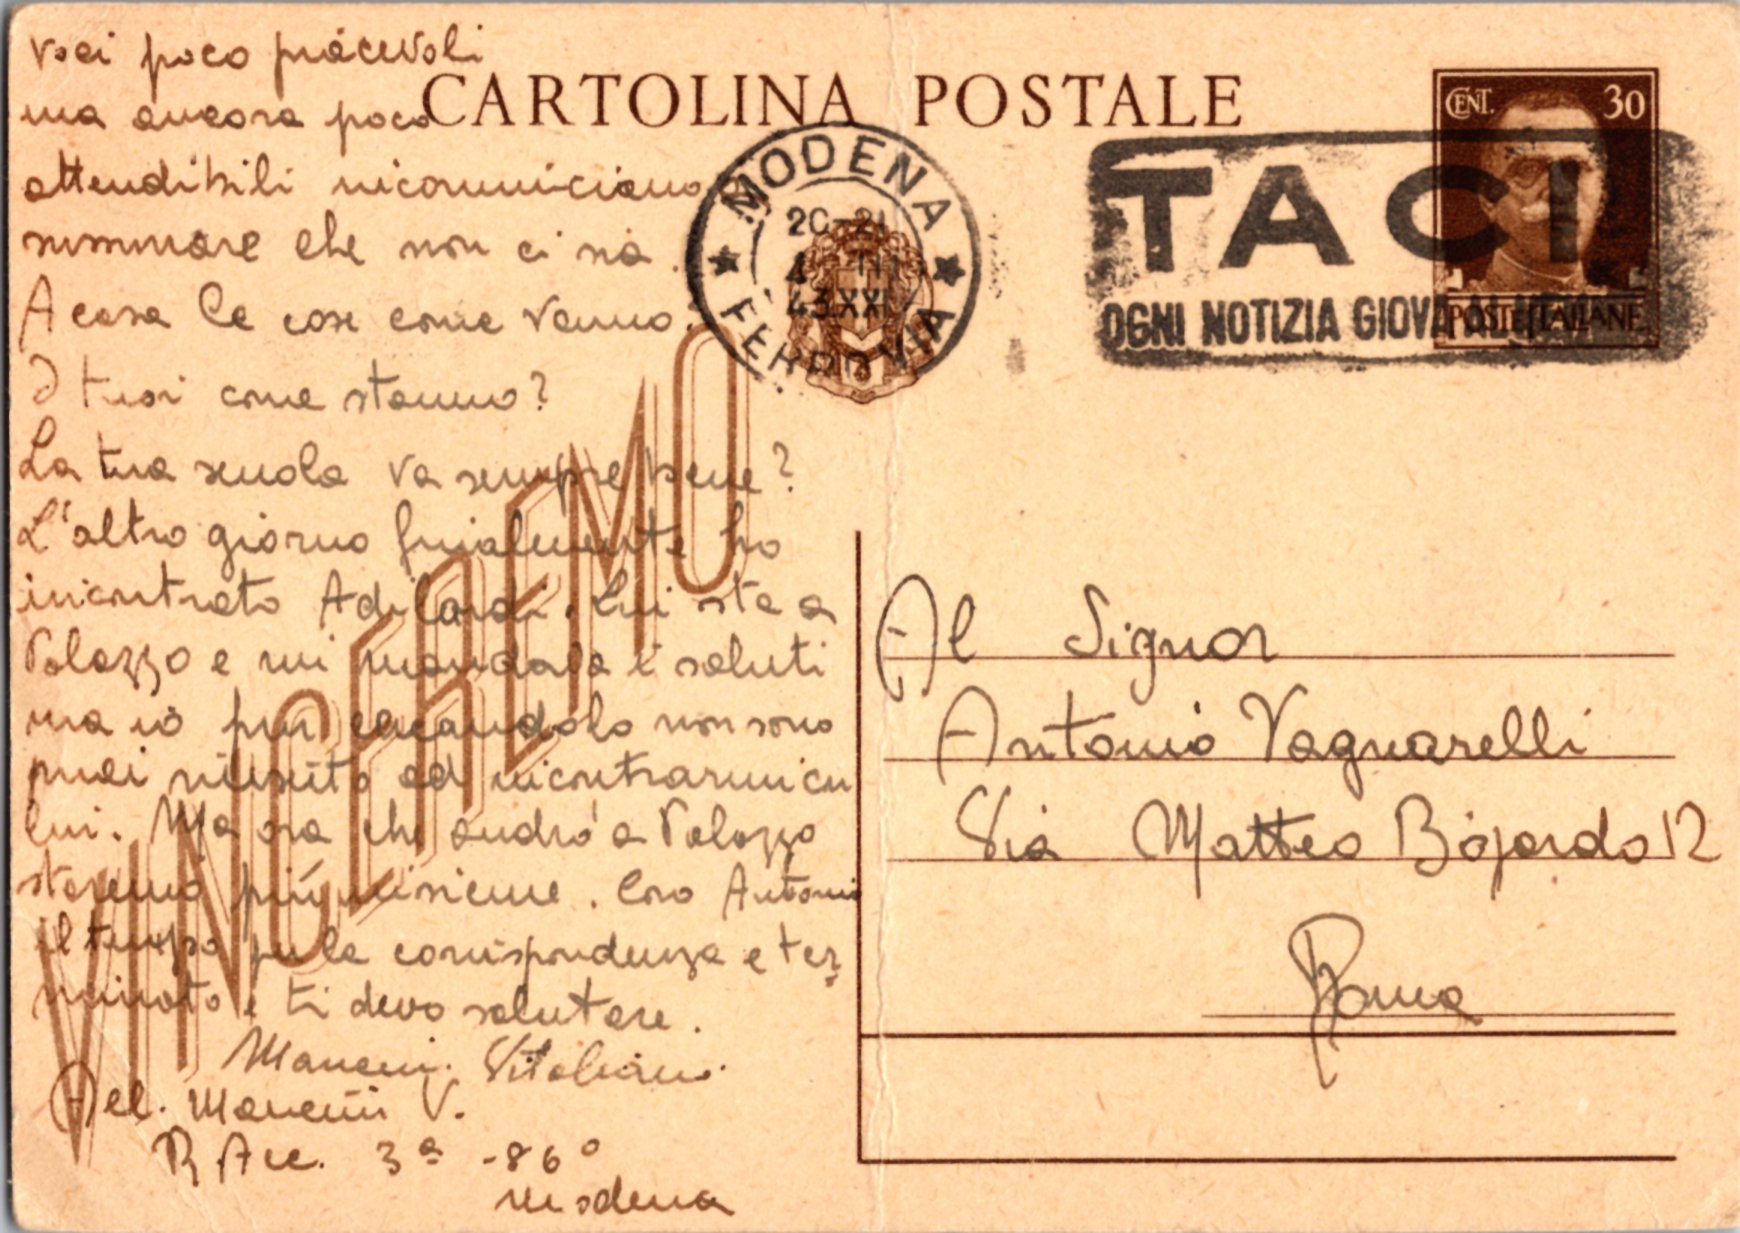 voci poco piacevoli
ma ancora poco
attendibili ricominciano
sussurrare che non ci sia.
A casa le cose come vanno?
I tuoi come stanno?
La tua scuola va sempre bene?
L'altro giorno finalmente ho
incontrato Adilardi. Lui sta a
Palazzo e mi mandava i saluti
ma io pur cercandolo non sono
mai riuscito ad incontrarmi con
lui. Ma ora che andrò a Palazzo
staremo più insieme. Caro Antonio
il tempo per la corrispondenza e ter
minato e ti devo salutare.
Mancini Vitaliano.
All. Mancini V.
R Acc. 3ª - 86°
Modena
CARTOLINA POSTALE
VINCEREMO
MODENA
20-21
4 III
43 XXI
FERROVIA
TACI
OGNI NOTIZIA GIOVA AL NEMICO
CENT. 30
POSTE ITALIANE
Al Signor
Antonio Vagnarelli
Via Matteo Bojardo 12
Roma